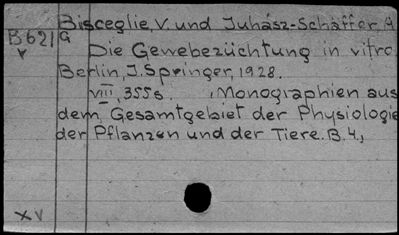 Bisceglie, V. und Juhász-Schäffer, A
B621 G
v Die Gewebezüchtung in vitro.
Berlin, J. Springer, 1928.
VIII, 355 s. (Monographien aus
dem Gesamtgebiet der Physiologie
der Pflanzen und der Tiere. B. 4.)
XV